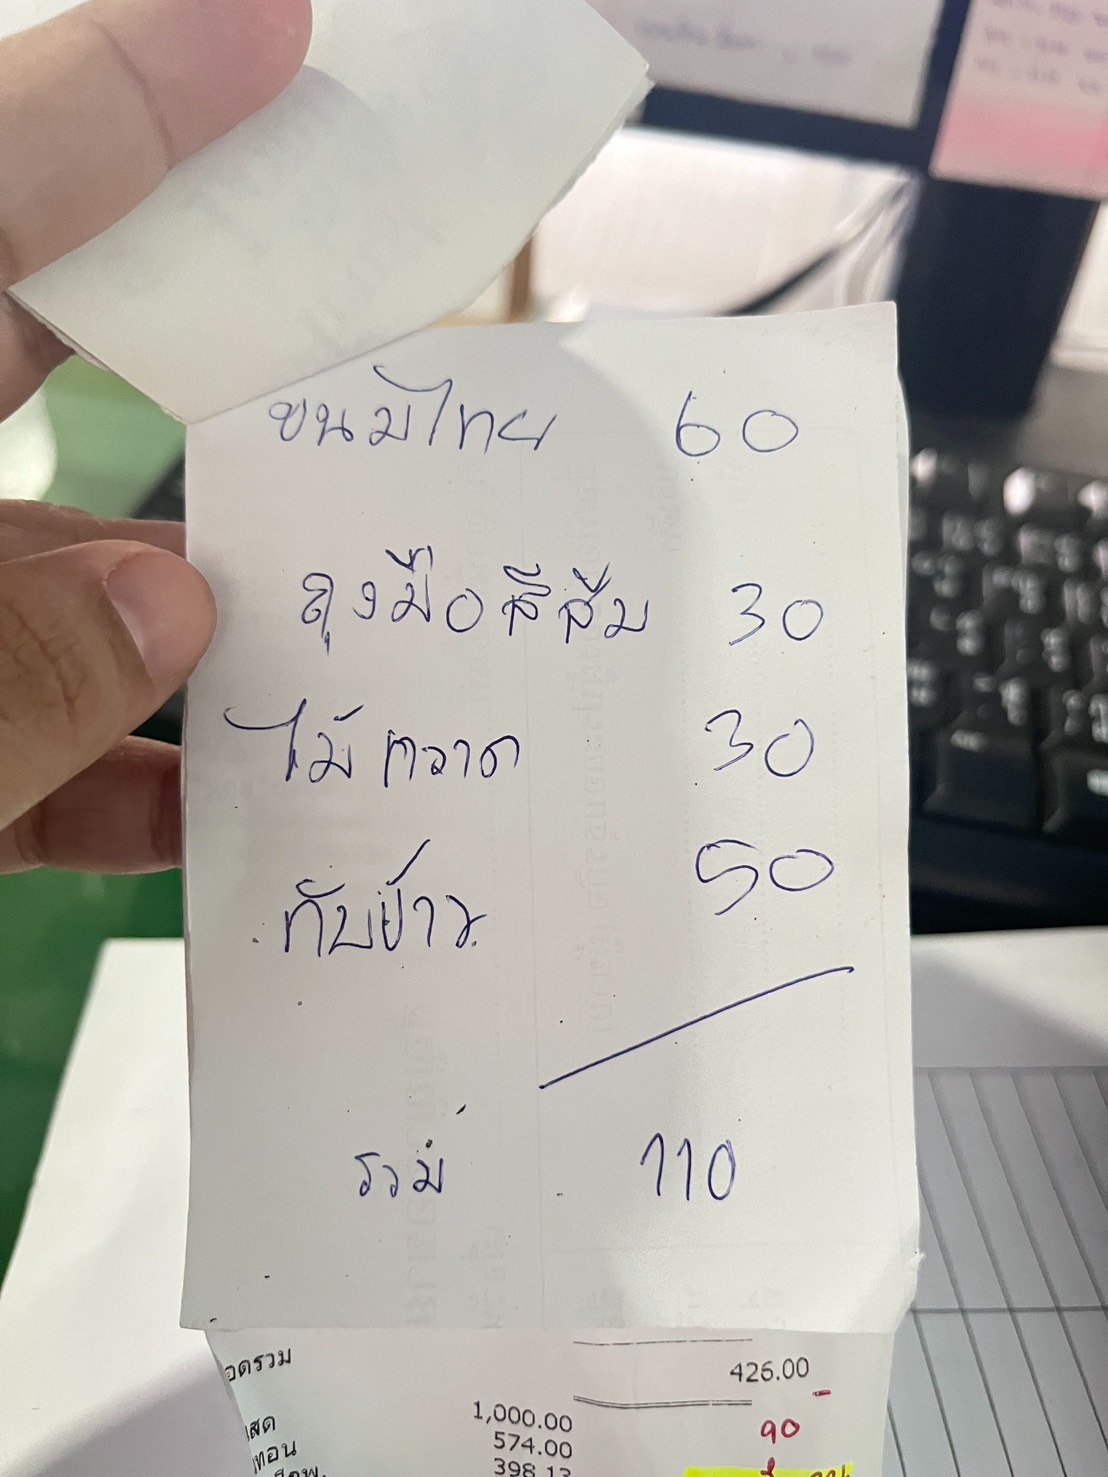 ขนมไทย 60
ถุงมือสีส้ม 30
ไม้กวาด 30
กับข้าว 50
รวม 110
อดรวม 426.00
1,000.00
574.00
398.13
90